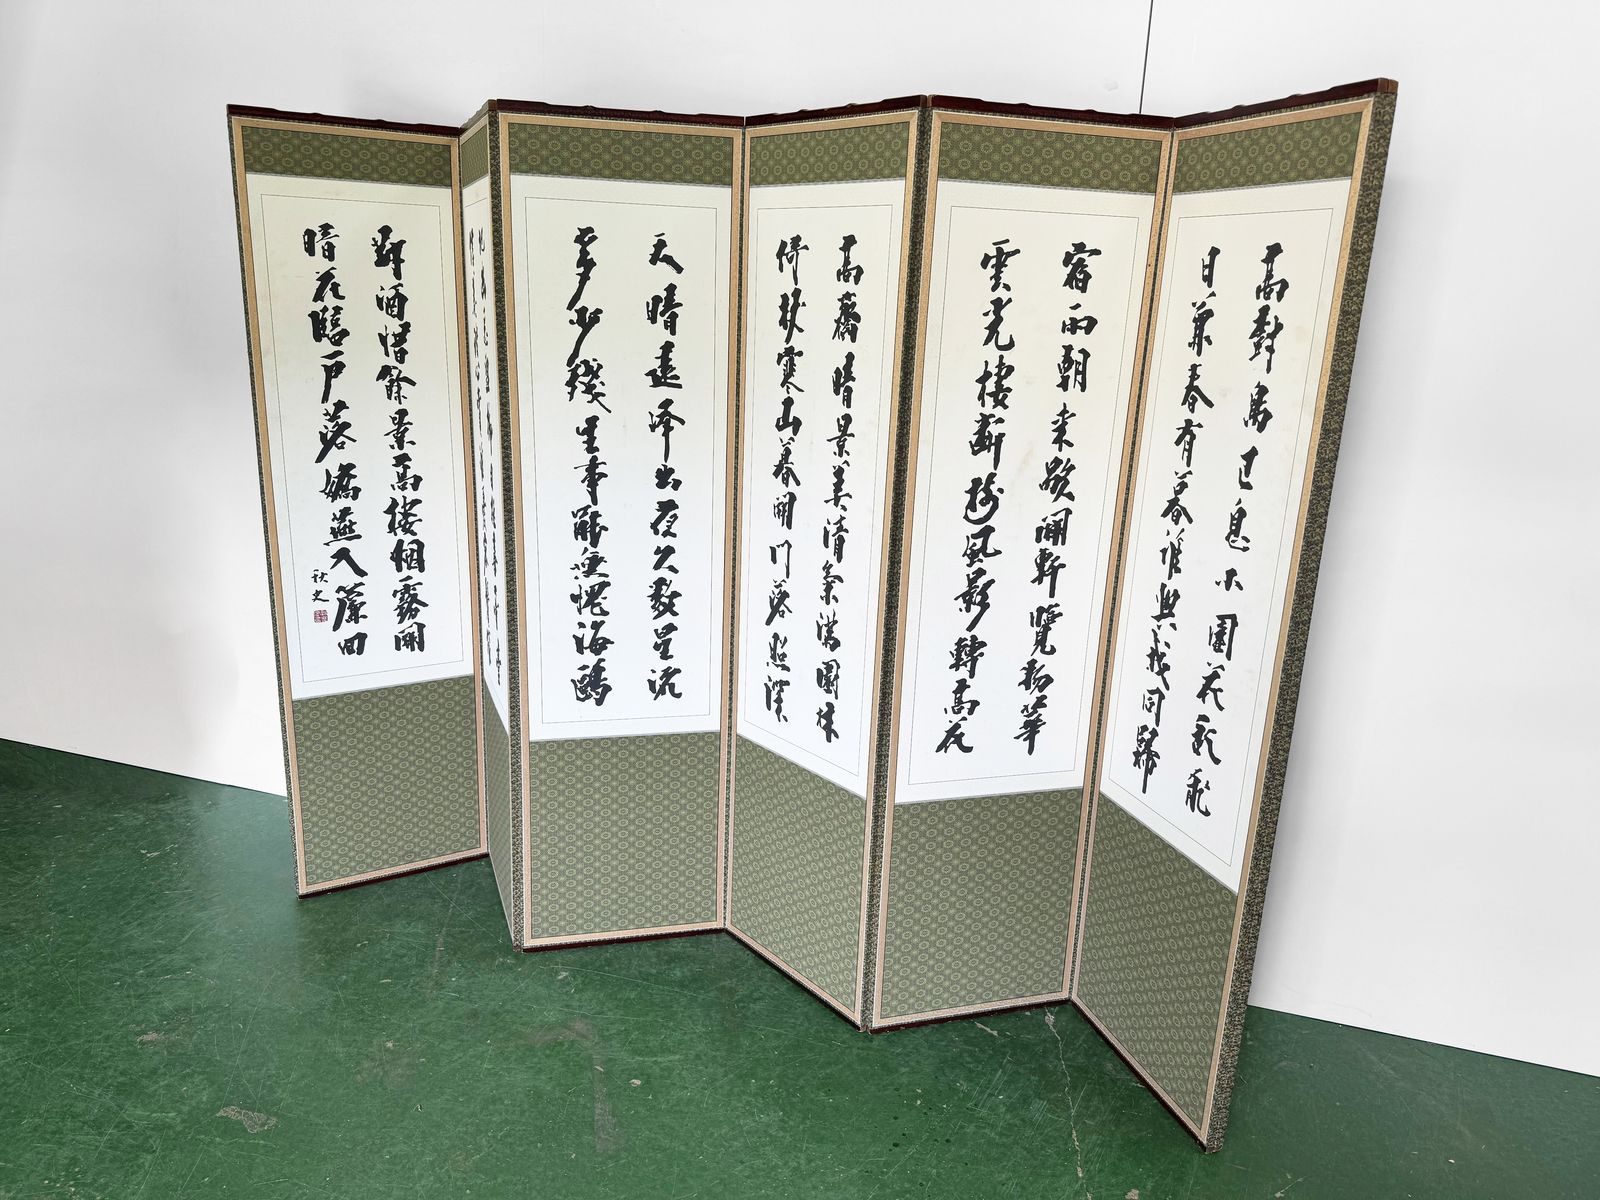 高樹鳥已息小園花亂飛
日兼春有暮誰與我同歸
宿雨朝來歇開軒覽物華
雲光棲斷樹風影轉高花
高齋晴景美清氣滿園林
倚杖寒山暮開門落照深
天晴遠峰出夜久數星流
多少殘生事能無愧海鷗
對酒惜餘景高樓烟霧開
晴花臨戶落嬌燕入簾回
秋史